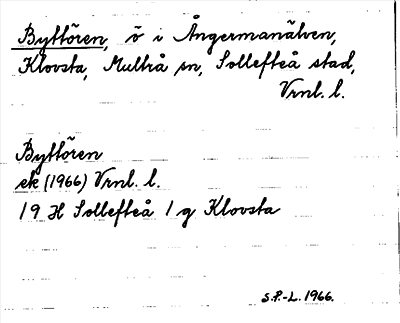 Byttören, ö i Ångermanälven,
Klovsta, Multrå sn, Sollefteå stad,
Vrnl. l.
Byttören
ek (1966) Vrnl. l.
19 H Sollefteå 1 g Klovsta
S.P.-L. 1966.